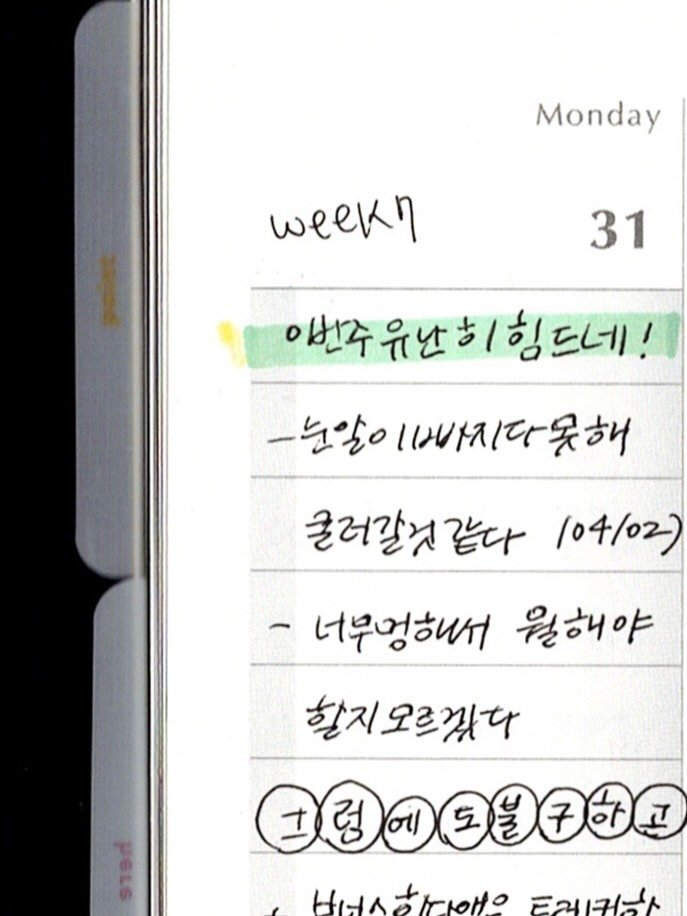 Monday
week 7
31
이번주 유난히 힘드네!
- 눈알이 빠지다 못해
굴러갈것 같다 (04/02)
- 너무멍해서 뭘해야
할지 모르겠다
그럼에도불구하고